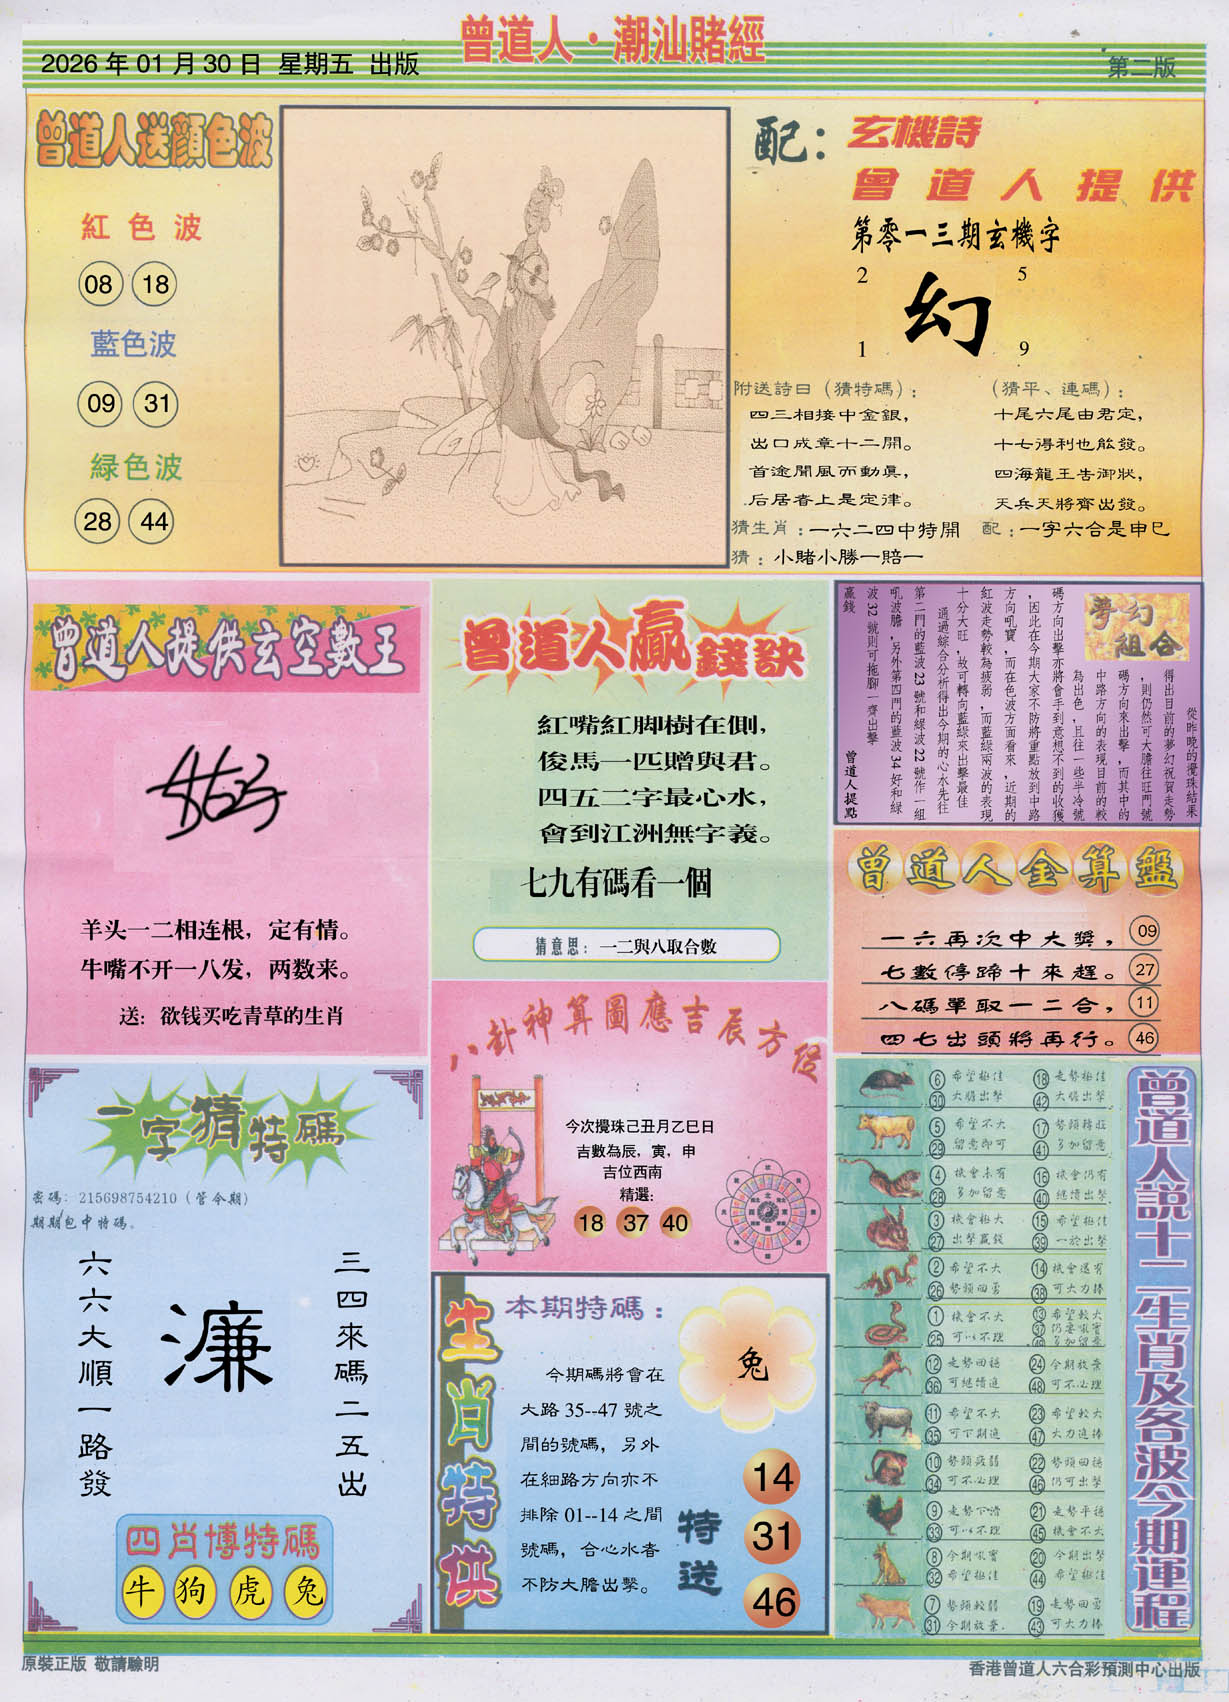 曾道人·潮汕賭經
2026 年 01 月 30 日 星期五 出版
第二版
曾道人送顏色波
紅色波
08 18
藍色波
09 31
緑色波
28 44
配：玄機詩
曾道人提供
第零一三期玄機字
2 5
幻
1 9
附送詩曰（猜特碼）：
四三相接中金銀，
出口成章十二開。
首途開風而動真，
后居者上是定律。
（猜平、連碼）：
十尾六尾由君定，
十七得利也能發。
四海龍王告御狀，
天兵天將齊出發。
猜生肖：一六二四中特開
配：一字六合是申巳
猜：小賭小勝一賠一
曾道人提供玄空數王
羊头一二相连根，定有情。
牛嘴不开一八发，两数来。
送：欲钱买吃青草的生肖
曾道人贏錢訣
紅嘴紅脚樹在側，
俊馬一匹贈與君。
四五二字最心水，
會到江洲無字義。
七九有碼看一個
猜意思：一二與八取合數
夢幻組合
從昨晚的攪珠結果
得出目前的夢幻祝賀走勢
，則仍然可大膽往旺門號
碼方向來出擊，而其中的
中路方向的表現目前的較
為出色，且往一些半冷號
碼方向出擊亦將會手到意想不到的收獲
，因此在今期大家不防將重點放到中路
方向吼寶，而在色波方面看來，近期的
紅波走勢較為疲弱，而藍綠兩波的表現
十分大旺，故可轉向藍綠來出擊最佳
通過綜合分析得出今期的心水先往
第二門的藍波 23 號和綠波 22 號作一組
吼波膽，另外第四門的藍波 34 好和綠
波 32 號則可拖腳一齊出擊
贏錢
曾道人提點
曾道人金算盤
一六再次中大獎， 09
七數停蹄十來趕。 27
八碼單取一二合， 11
四七出頭將再行。 46
八卦神算圖應吉辰方位
今次攪珠己丑月乙巳日
吉數為辰，寅，申
吉位西南
精選：
18 37 40
一字猜特碼
密碼：215698754210（管令期）
期期包中特碼。
三四來碼二五出
濂
六六大順一路發
四肖博特碼
牛 狗 虎 兔
生肖特供
本期特碼：
兔
今期碼將會在
大路 35--47 號之
間的號碼，另外
在細路方向亦不
排除 01--14 之間
號碼，合心水者
不防大膽出擊。
特送
14
31
46
曾道人說十二生肖及各波今期運程
6 希望極佳 18 走勢極佳
30 大膽出擊 42 大膽出擊
5 希望不大 17 勢頭轉旺
29 留意即可 41 多加留意
4 機會未有 16 機會仍有
28 多加留意 40 繼續出擊
3 機會極大 15 希望極佳
27 出擊贏錢 39 一於出擊
2 希望不大 14 機會還有
26 勢頭回勇 38 可大力捧
1 機會不大 13 希望較大
37 仍要吼寶
25 可以不理 49 多加留意
12 走勢回穩 24 今期放棄
36 可繼續進 48 可不必理
11 希望不大 23 希望較大
35 可下期進 47 大力進捧
10 勢頭疲弱 22 勢頭回穩
34 可不必理 46 仍可出擊
9 走勢下滑 21 走勢平穩
33 可以不理 45 機會不大
8 今期吼寶 20 今期出擊
32 希望極佳 44 希望極佳
7 勢頭較弱 19 走勢回勇
31 今期放棄. 43 可大力捧
原裝正版 敬請驗明
香港曾道人六合彩預測中心出版